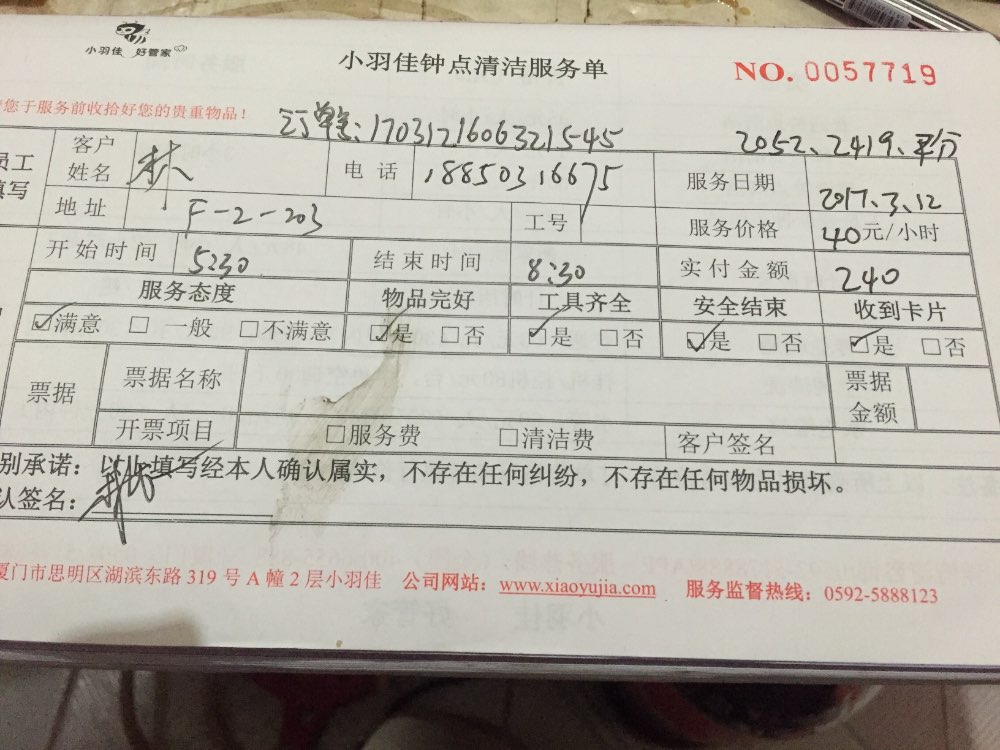 小羽佳 好管家
小羽佳钟点清洁服务单 NO. 0057719
您于服务前收拾好您的贵重物品！
订单号：170312160632154​5 2052、2419、平分
员工填写 客户姓名 林 电话 18850316675 服务日期 2017.3.12
地址 F-2-203 工号 服务价格 40元/小时
开始时间 5:30 结束时间 8:30 实付金额 240
服务态度 物品完好 工具齐全 安全结束 收到卡片
☑满意 □一般 □不满意 ☑是 □否 ☑是 □否 ☑是 □否 ☑是 □否
票据 票据名称 票据金额
开票项目 □服务费 □清洁费 客户签名
别承诺：以上填写经本人确认属实，不存在任何纠纷，不存在任何物品损坏。
认签名：
厦门市思明区湖滨东路 319 号 A 幢 2 层小羽佳 公司网站：www.xiaoyujia.com 服务监督热线：0592-5888123